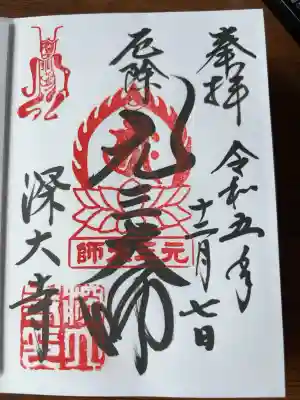 奉拝
令和五年
十二月七日
厄除
元三大師
元三大師
深大寺